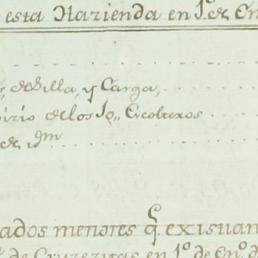 esta Hazienda en 1º de En
de Silla, y Carga,
de los Jo,, Escolteros
de ydm
ados menores q. existian
de Cruzeritas en 1º de En.º de